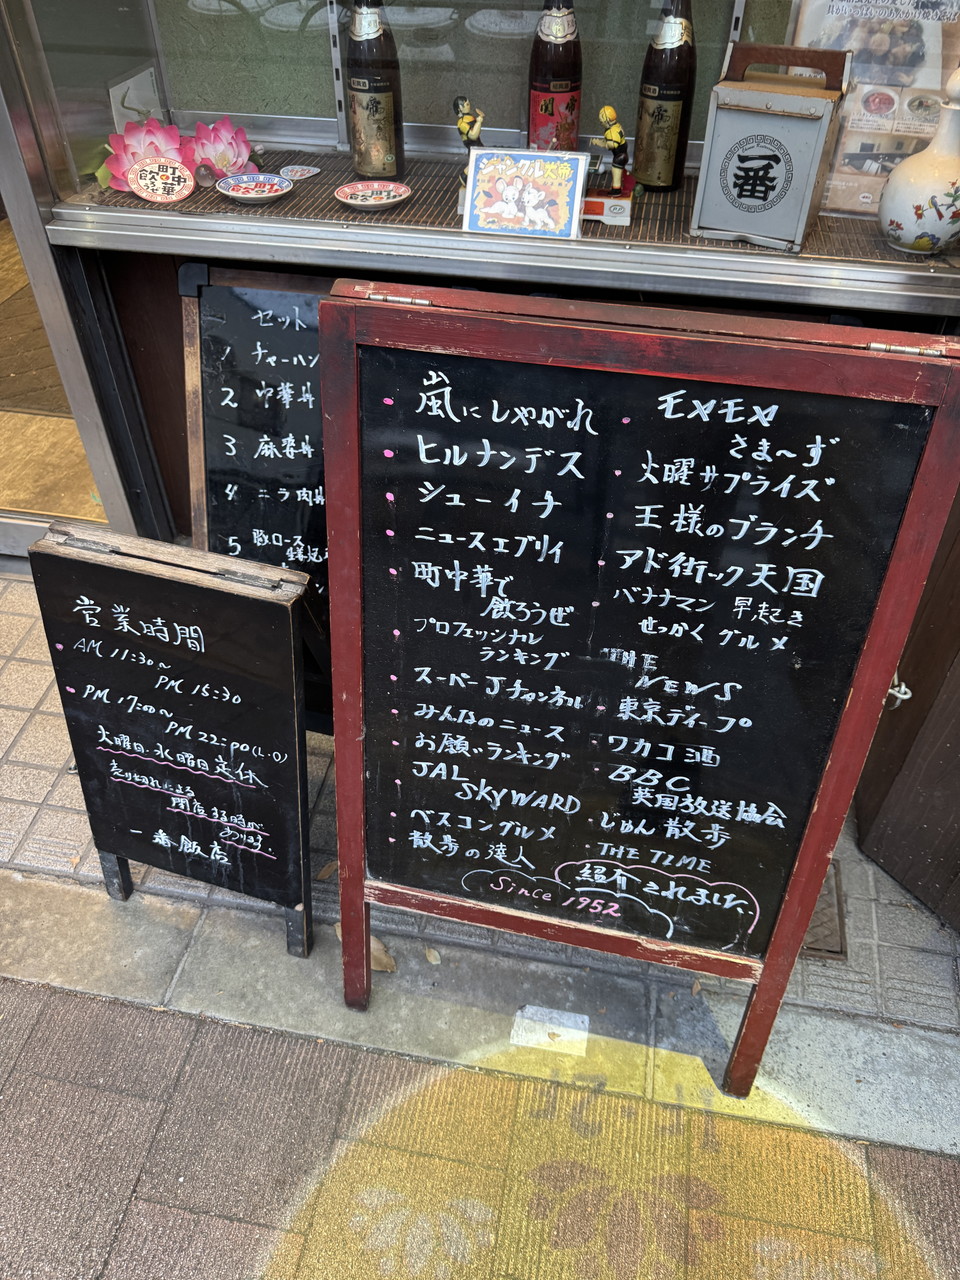 町中華
飲
ジャングル大帝
一番
セット
1 チャーハン
2 中華丼
3 麻婆丼
4 ニラ肉丼
5 豚ロース
営業時間
AM 11:30~
PM 15:30
PM 17:00~
PM 22:00(L.O)
火曜日.水曜日定休
売り切れによる
閉店する時が
あります.
一番飯店
嵐にしやがれ
ヒルナンデス
シューイチ
ニュースエブリイ
町中華で
飲ろうぜ
プロフェッショナル
ランキング
スーパーJチャンネル
みんなのニュース
お願いランキング
JAL
SKYWARD
ベスコングルメ
散歩の達人
モヤモヤ
さま~ず
火曜サプライズ
王様のブランチ
アド街ック天国
バナナマン 早起き
せっかくグルメ
THE
NEWS
東京ディープ
ワカコ酒
BBC
英国放送協会
じゅん散歩
THE TIME
紹介されました.
Since 1952